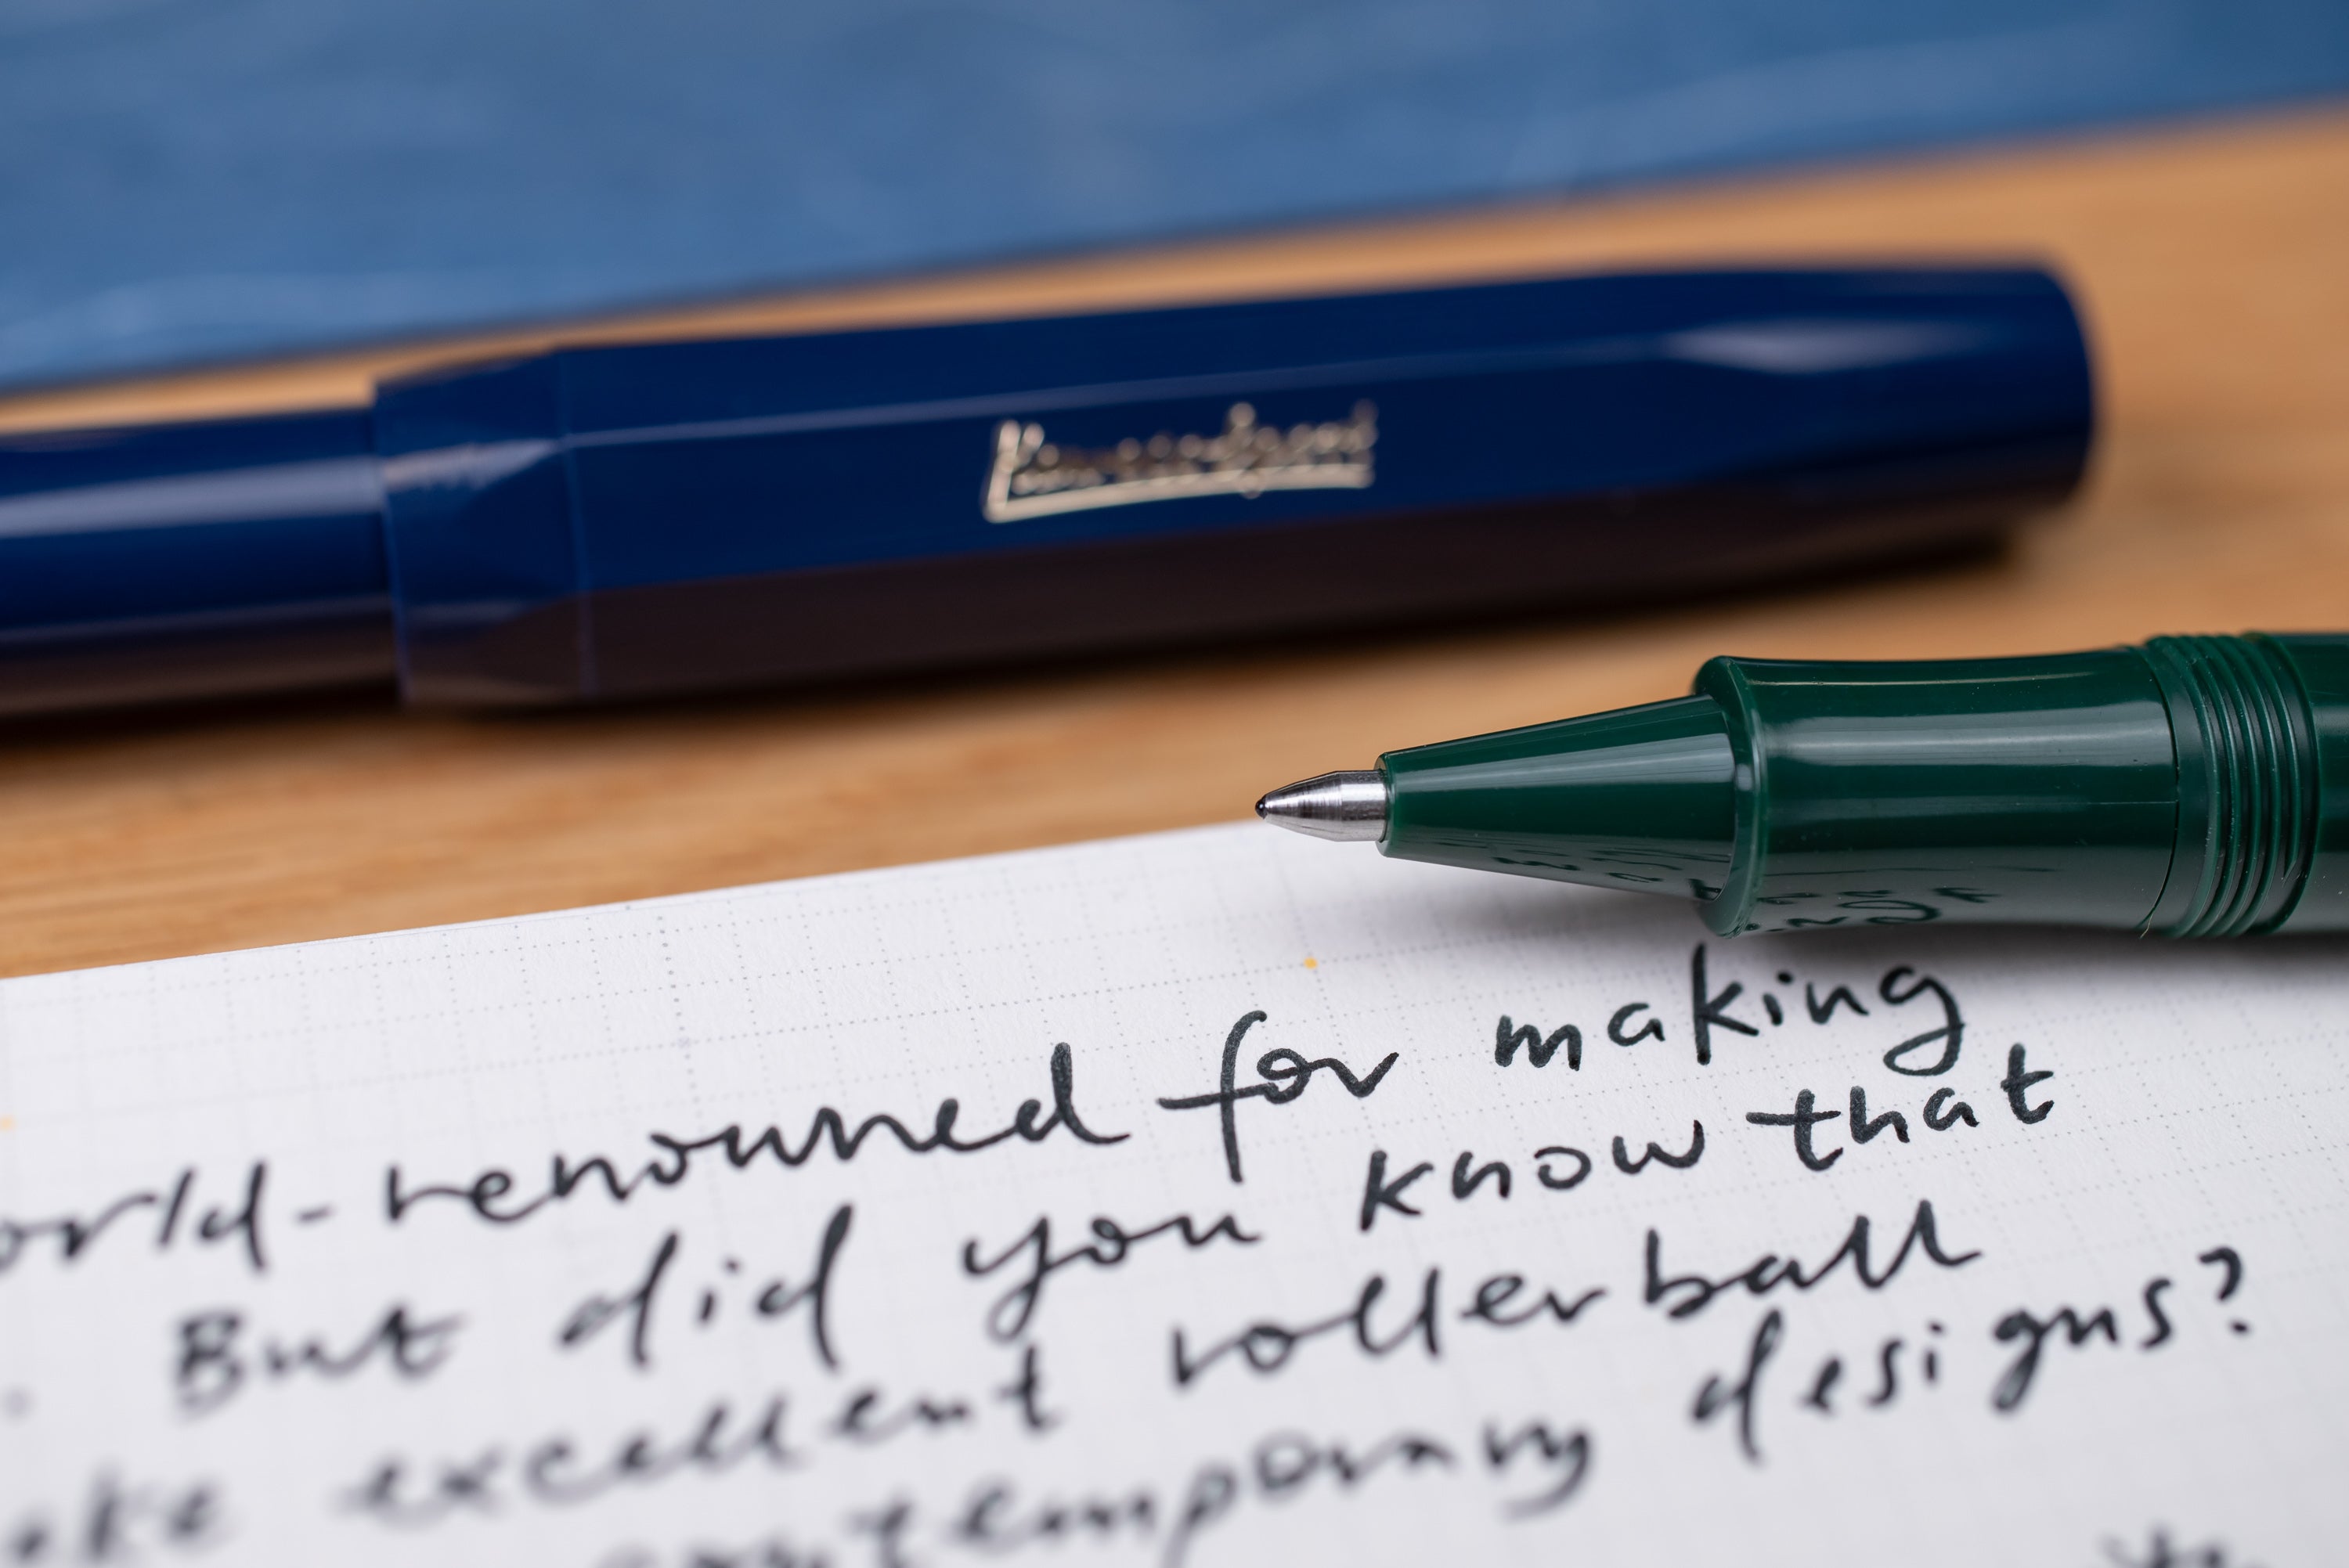 Kaweco Sport
orld-renowned for making
. But did you know that
ake excellent rollerball
contemporary designs?